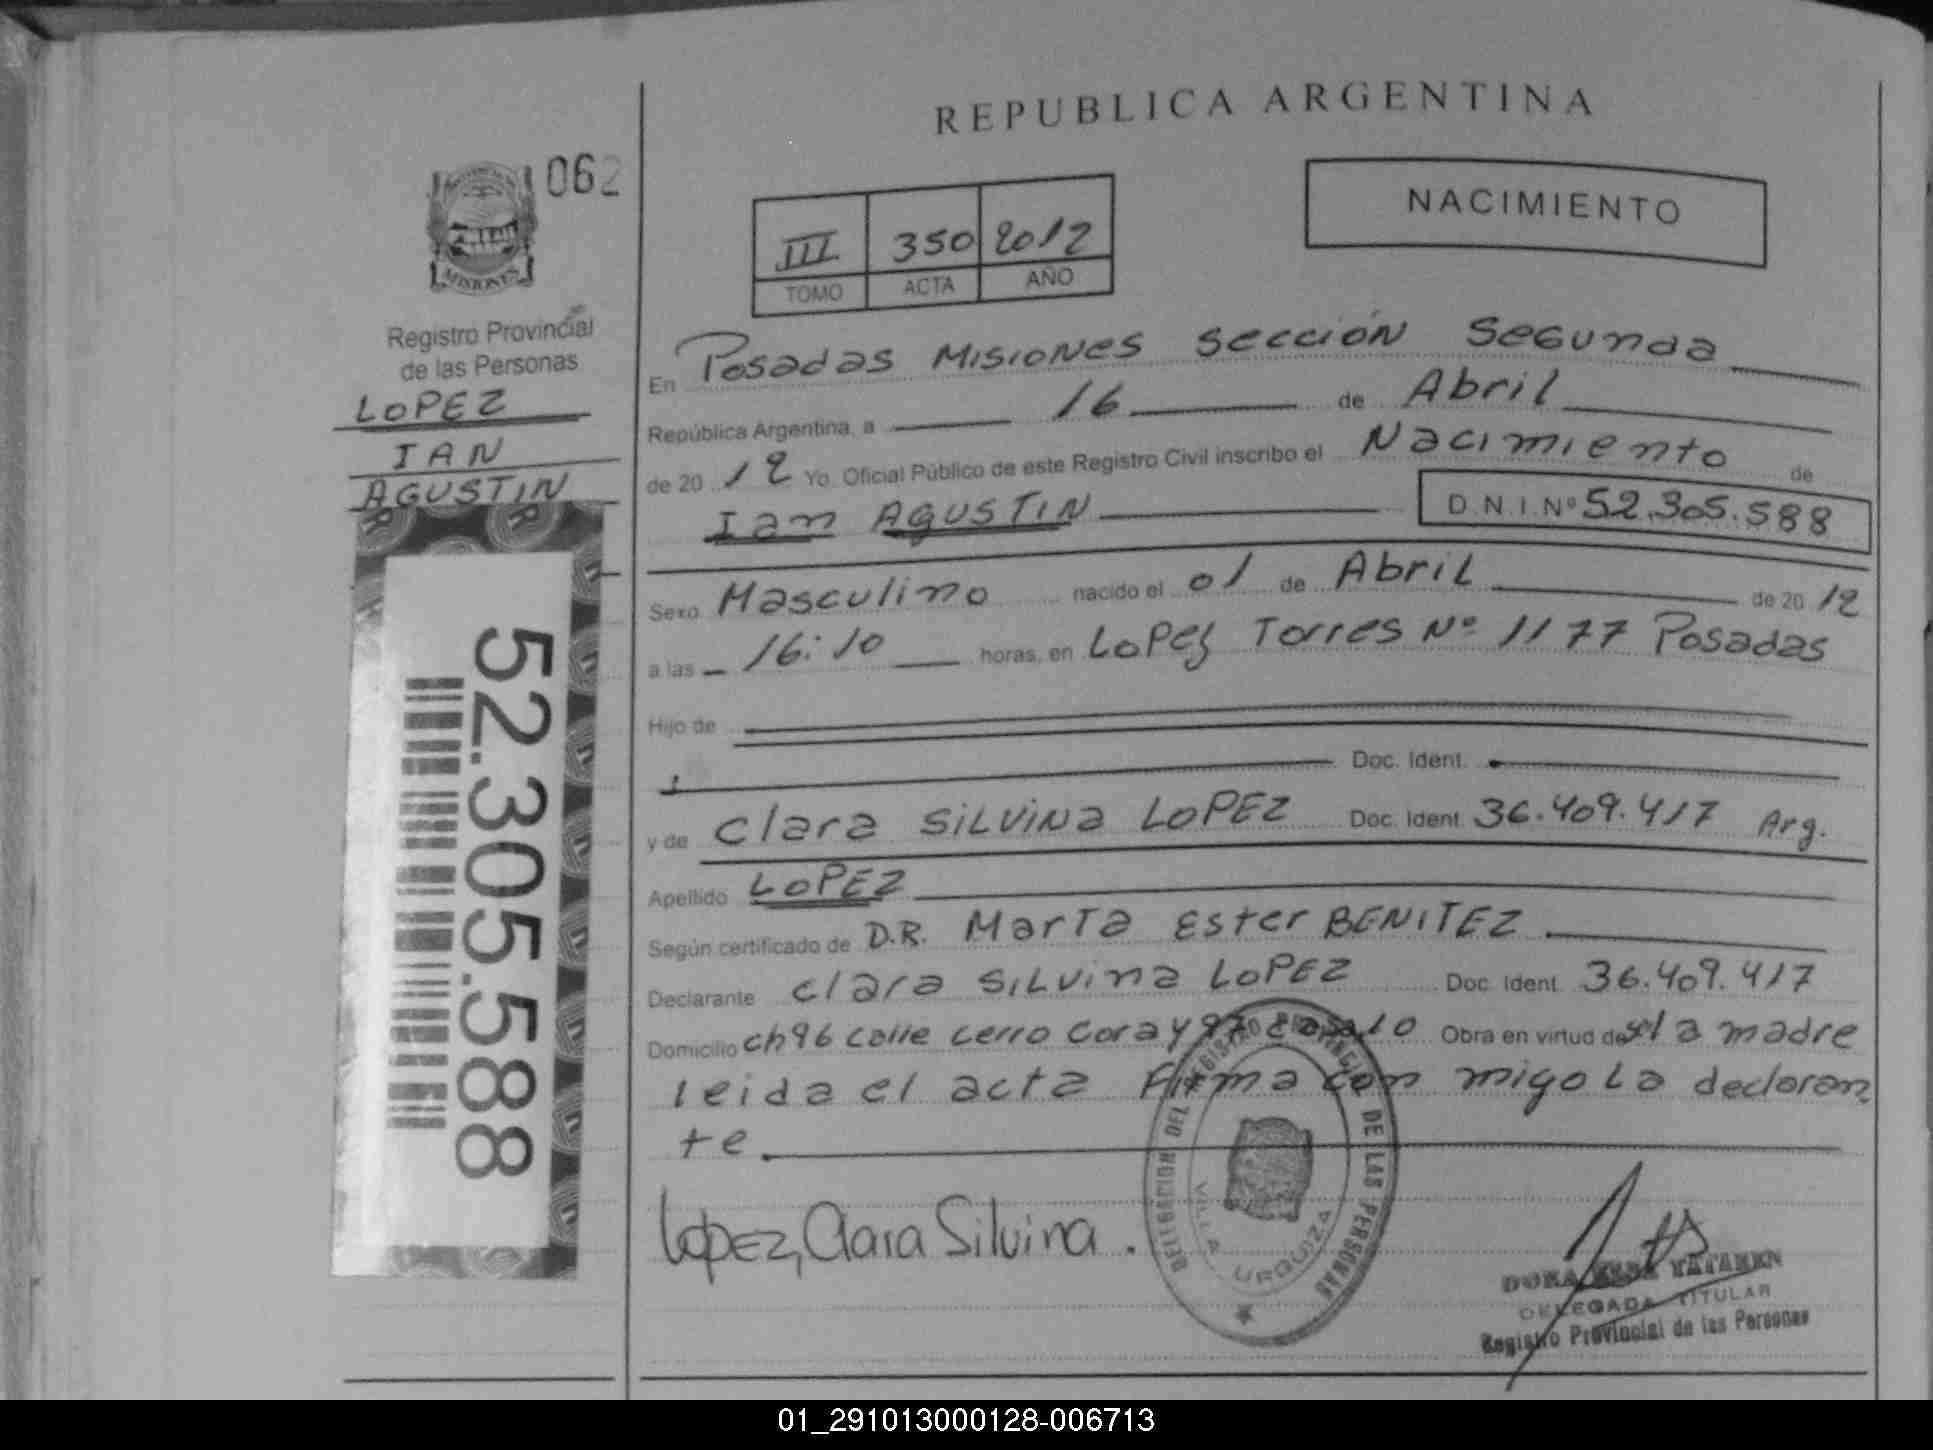 REPUBLICA ARGENTINA
062
NACIMIENTO
III 350 2012
TOMO ACTA AÑO
MISIONES
Registro Provincial
de las Personas
LOPEZ
IAN
AGUSTIN
52.305.588
En Posadas Misiones Sección Segunda
República Argentina, a 16 de Abril
de 20 12 Yo. Oficial Público de este Registro Civil inscribo el Nacimiento de
Ian AGUSTIN D.N.I. Nº 52.305.588
Sexo Masculino nacido el 01 de Abril de 20 12
a las 16:10 horas, en Lopez Torres Nº 1177 Posadas
Hijo de
Doc. Ident.
y de Clara Silvina LOPEZ Doc. Ident. 36.409.417 Arg.
Apellido LOPEZ
Según certificado de D.R. Marta Ester BENITEZ
Declarante Clara Silvina LOPEZ Doc. Ident. 36.409.417
Domicilio ch 96 calle cerro cora y 97 Obra en virtud de ser la madre
leida el acta Firma con migo La declaran
te.
Lopez, Clara Silvina.
DEL REGISTRO PROVINCIAL DE LAS PERSONAS
VILLA URQUIZA
DORA
DELEGADA TITULAR
Registro Provincial de las Personas
01_291013000128-006713